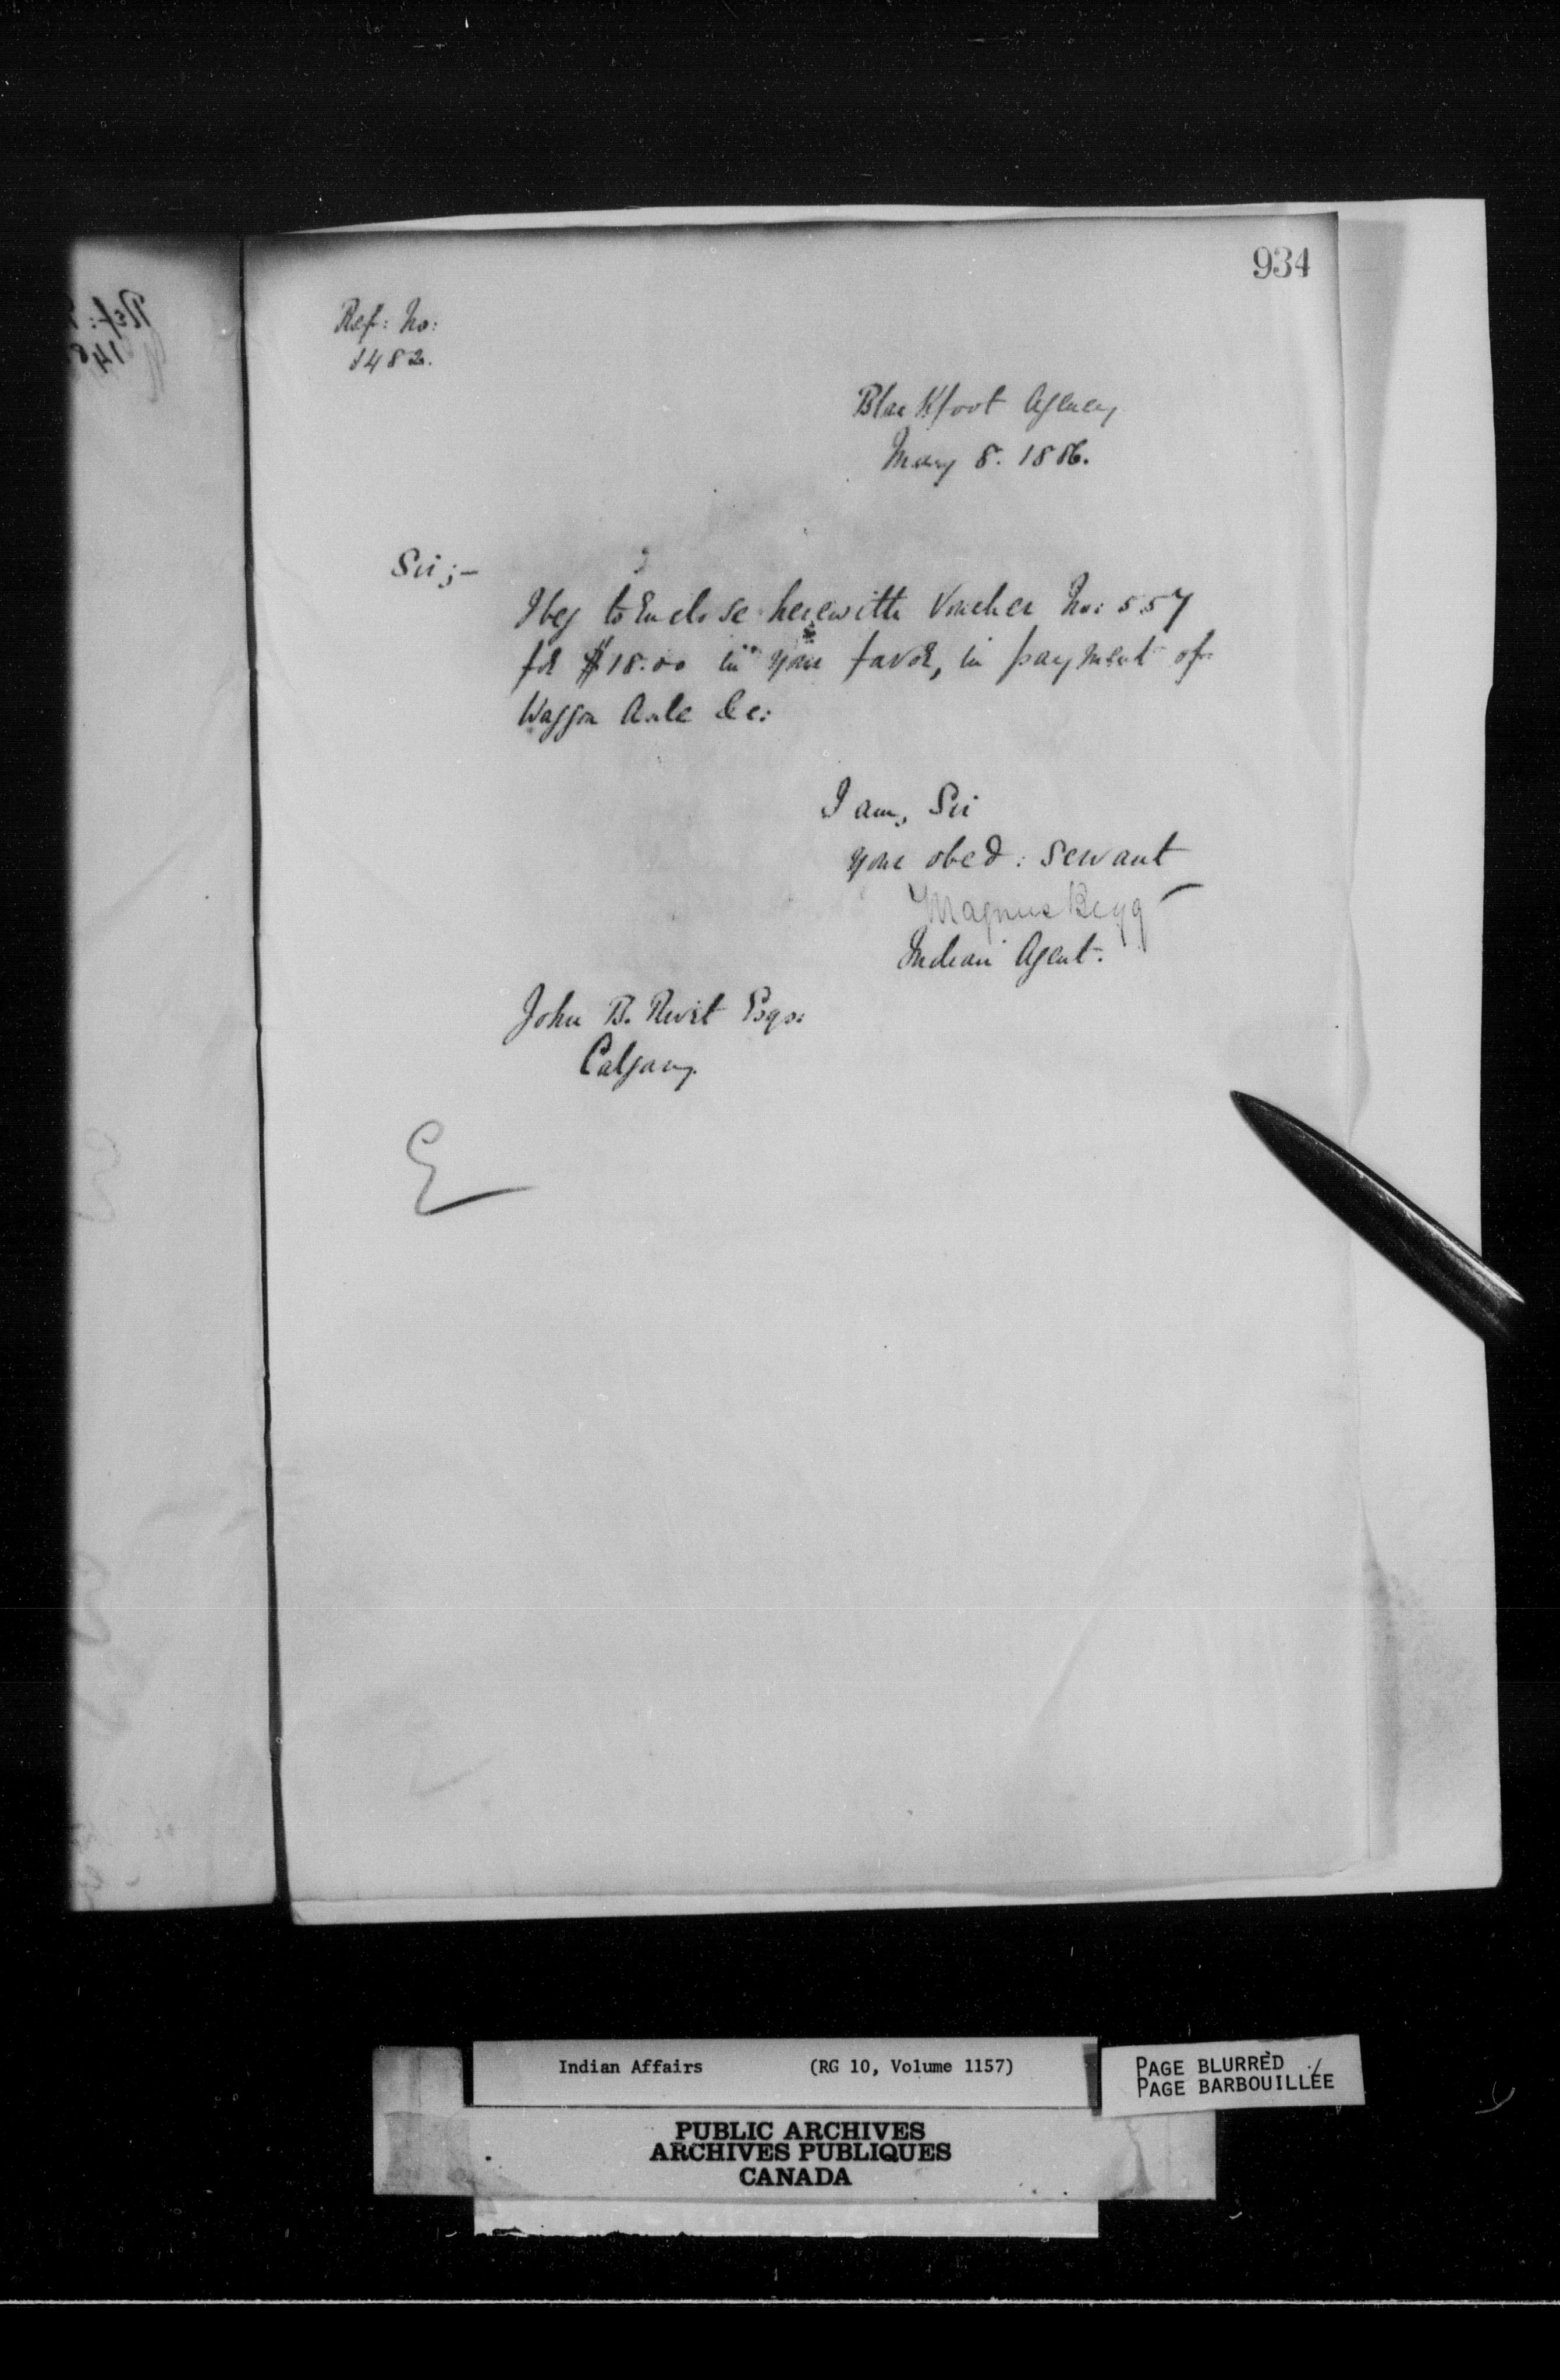 934
Ref: No:
1482.
Blackfoot Agency
May 8. 1886.
Sir;-
I beg to Enclose herewith Voucher No: 557
for $18.00 in your favor, in payment of
Waggon Axle &c:
I am, Sir
Your obed: servant
Magnus Begg
Indian Agent.
John B. Esqr:
Calgary.
E
Indian Affairs (RG 10, Volume 1157)
PAGE BLURRED
PAGE BARBOUILLÉE
PUBLIC ARCHIVES
ARCHIVES PUBLIQUES
CANADA